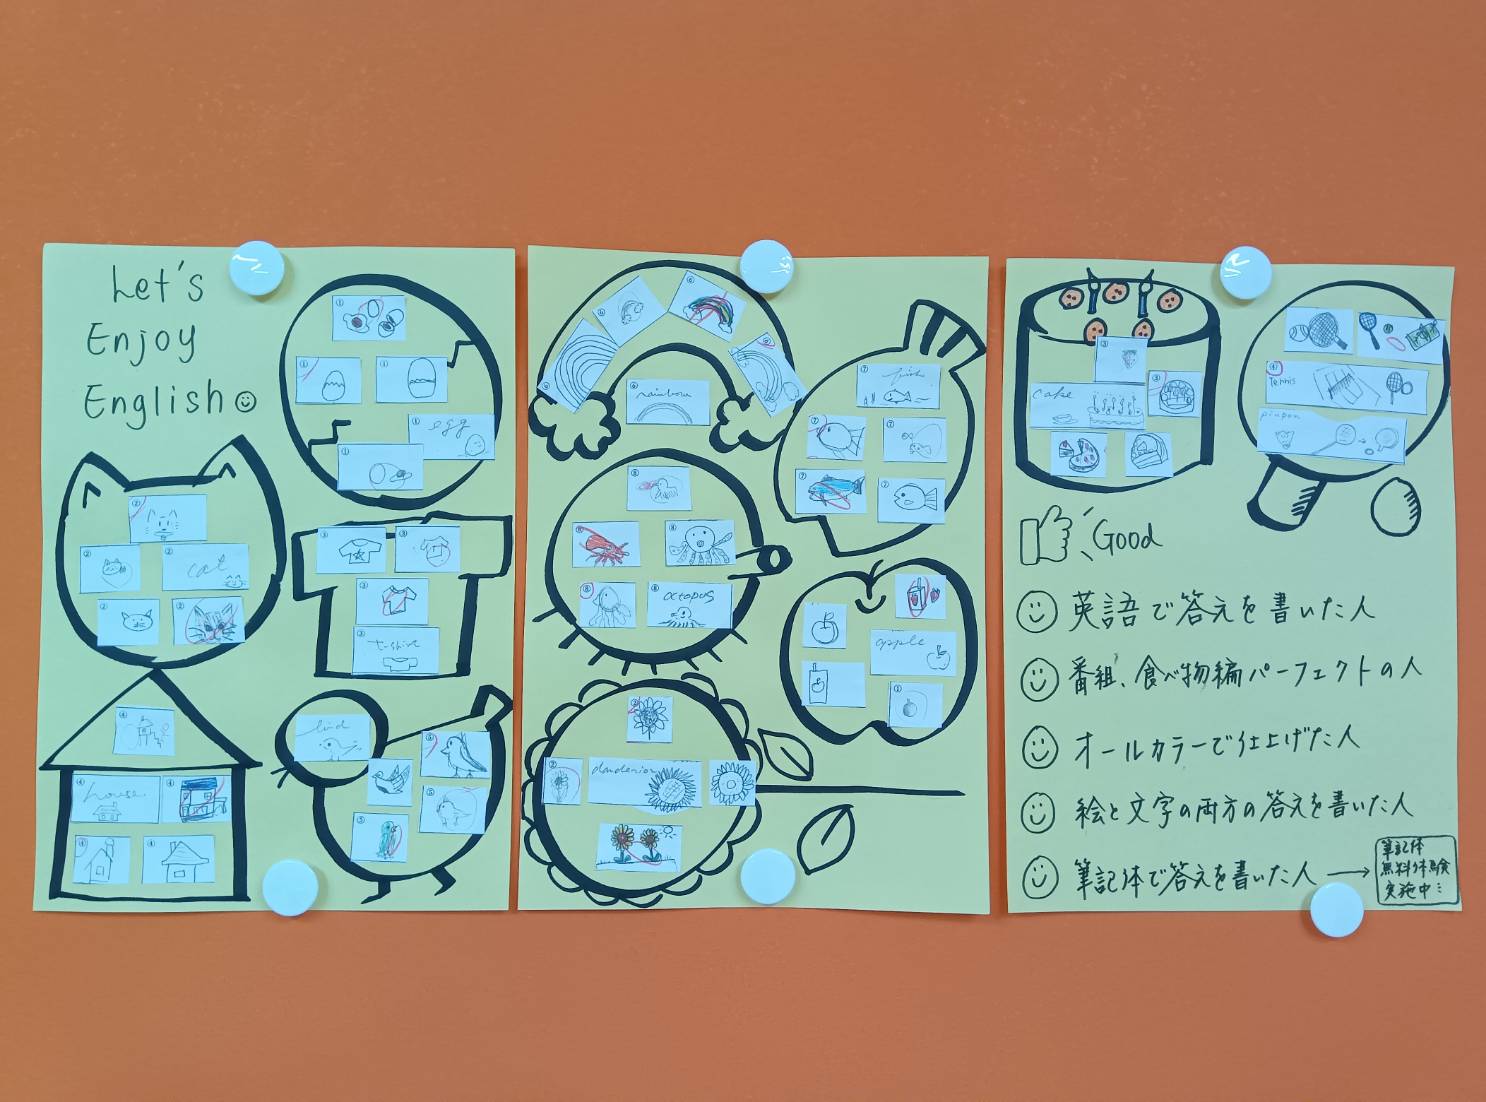 Let's
Enjoy
English
①
①
①
egg
①
①
②
②
②
cat
②
②
③
③
③
③
t-shirt
④
④
house
④
④
④
bird
⑤
⑤
⑤
⑥
⑥
⑥
⑥
rainbow
⑦
fish
⑦
⑦
⑦
⑦
⑧
⑧
⑧
⑧
⑧
octopus
apple
dandenion
③
cake
③
④
Tennis
pinpon
Good
英語で答えを書いた人
番組、食べ物編パーフェクトの人
オールカラーで仕上げた人
絵と文字の両方の答えを書いた人
筆記体で答えを書いた人→
筆記体
無料体験
実施中